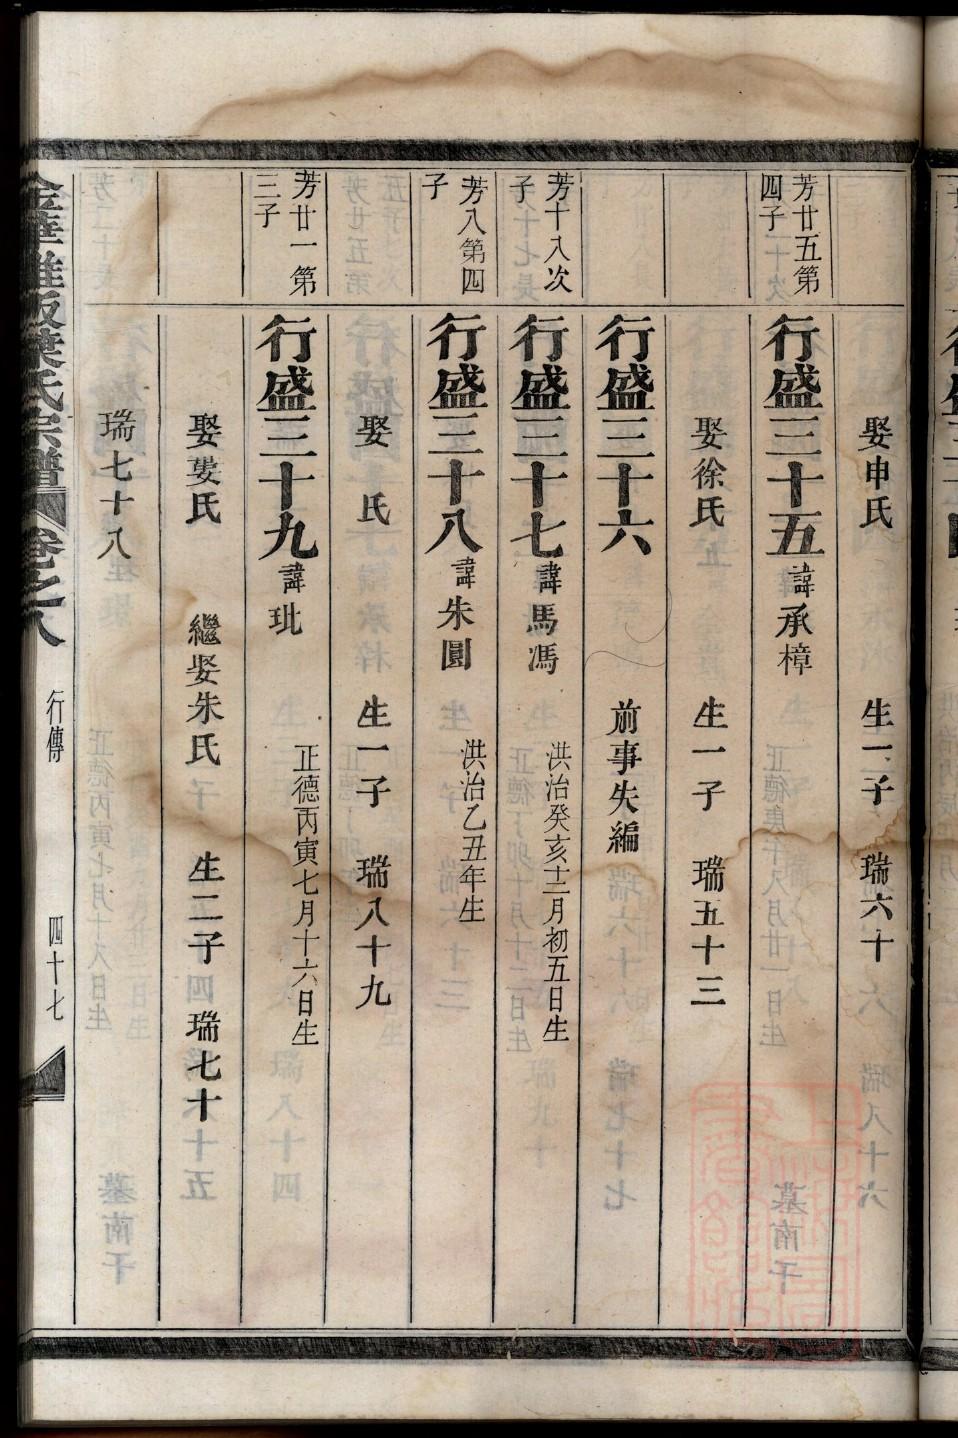 娶申氏 生一子 瑞六十
芳廿五第四子
行盛三十五 諱承樟
娶徐氏 生一子 瑞五十三
行盛三十六 前事失編
芳十八次子
行盛三十七 諱馬馮 洪治癸亥十二月初五日生
芳八第四子
行盛三十八 諱朱圓 洪治乙丑年生
娶 氏 生一子 瑞八十九
芳廿一第三子
行盛三十九 諱玭 正德丙寅七月十六日生
娶婁氏 繼娶朱氏 生二子 瑞七十
瑞七十八
葉氏宗譜 卷之八 行傳 四十七